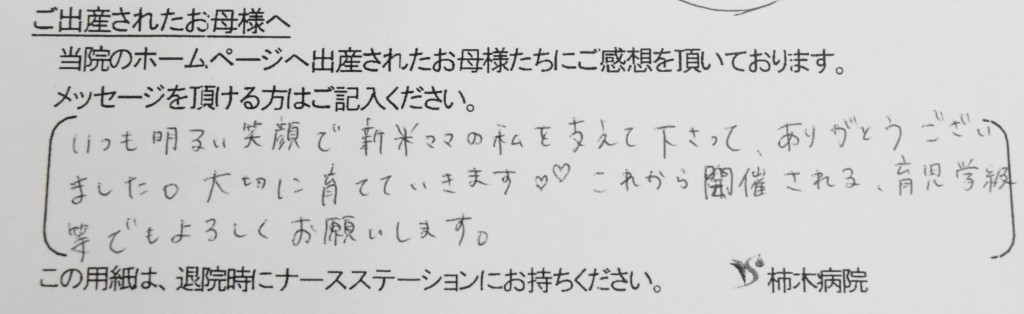 ご出産されたお母様へ
当院のホームページへ出産されたお母様たちにご感想を頂いております。
メッセージを頂ける方はご記入ください。
いつも明るい笑顔で新米ママの私を支えて下さって、ありがとうござい
ました。大切に育てていきます♡♡これから開催される、育児学級
等でもよろしくお願いします。
この用紙は、退院時にナースステーションにお持ちください。 柿木病院